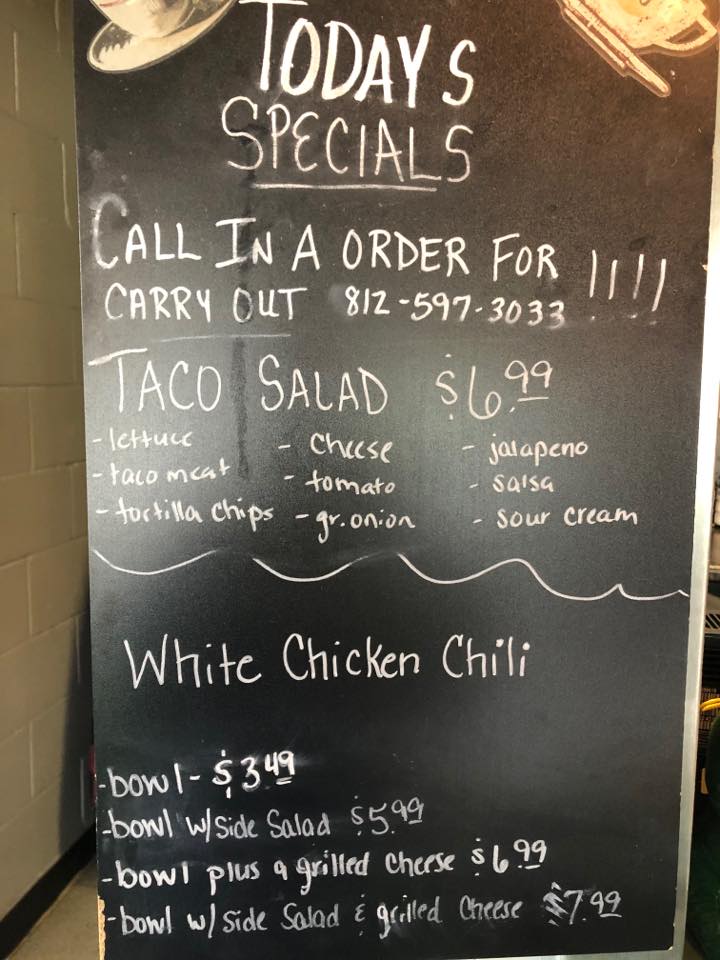 TODAYS
SPECIALS
CALL IN A ORDER FOR
CARRY OUT 812-597-3033 !!!!
TACO SALAD $6.99
- lettuce - cheese - jalapeno
- taco meat - tomato - salsa
- tortilla chips - gr. onion - sour cream
White Chicken Chili
- bowl - $3.49
- bowl w/ side Salad $5.99
- bowl plus a grilled cheese $6.99
- bowl w/ side Salad & grilled Cheese $7.99